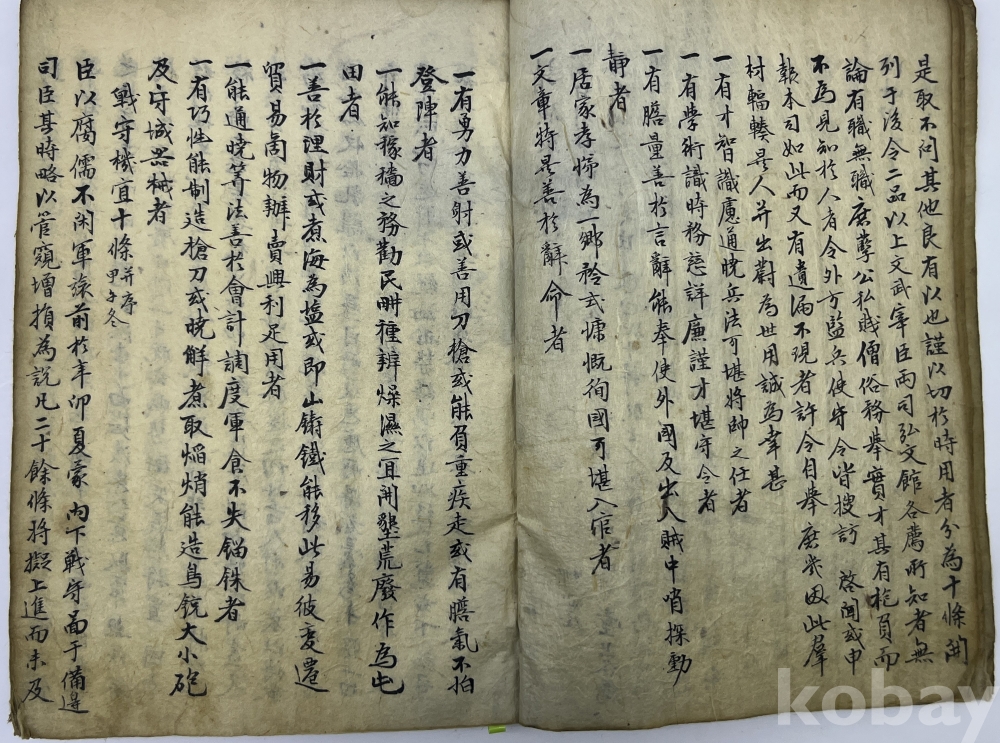 是取不問其他良有以也謹以切於時用者分為十條開
列于後令二品以上文武宰臣兩司弘文館各薦所知者無
論有職無職庶孽公私賤僧俗務舉實才其有抱負而
不為見知於人者令外方監兵使守令皆搜訪 啓聞或申
報本司如此而又有遺漏不現者許令自舉庶幾因此羣
材輻輳異人并出蔚為世用誠為幸甚
一有才智識慮通曉兵法可堪將帥之任者
一有學術識時務慈詳廉謹才堪守令者
一有膽量善於言辭能奉使外國及出入賊中哨探動
靜者
一居家孝悌為一鄉矜式慷慨徇國可堪入官者
一文章特異善於辭命者
一有勇力善射或善用刀槍或能負重疾走或有膽氣不怕
登陣者
一能知稼穡之務勸民畊種辨燥濕之宜開墾荒廢作為屯
田者
一善於理財或煮海為塩或即山鑄鐵能移此易彼变遷
貿易商物辦賣興利足用者
一能通曉算法善於會計調度軍食不失錙銖者
一有巧性能制造槍刀或曉解煮取焰焇能造鳥銃大小砲
及守城器械者
戰守機宜十條 并序 甲午冬
臣以腐儒不閑軍旅前於辛卯夏蒙 內下戰守啚于備邊
司臣其時略以管窺增損為說凡二十餘條將擬上進而未及
kobay